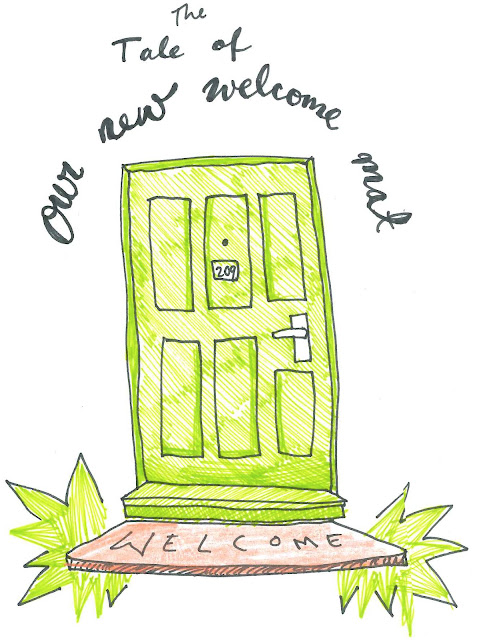 The
Tale of
our new welcome mat
209
WELCOME